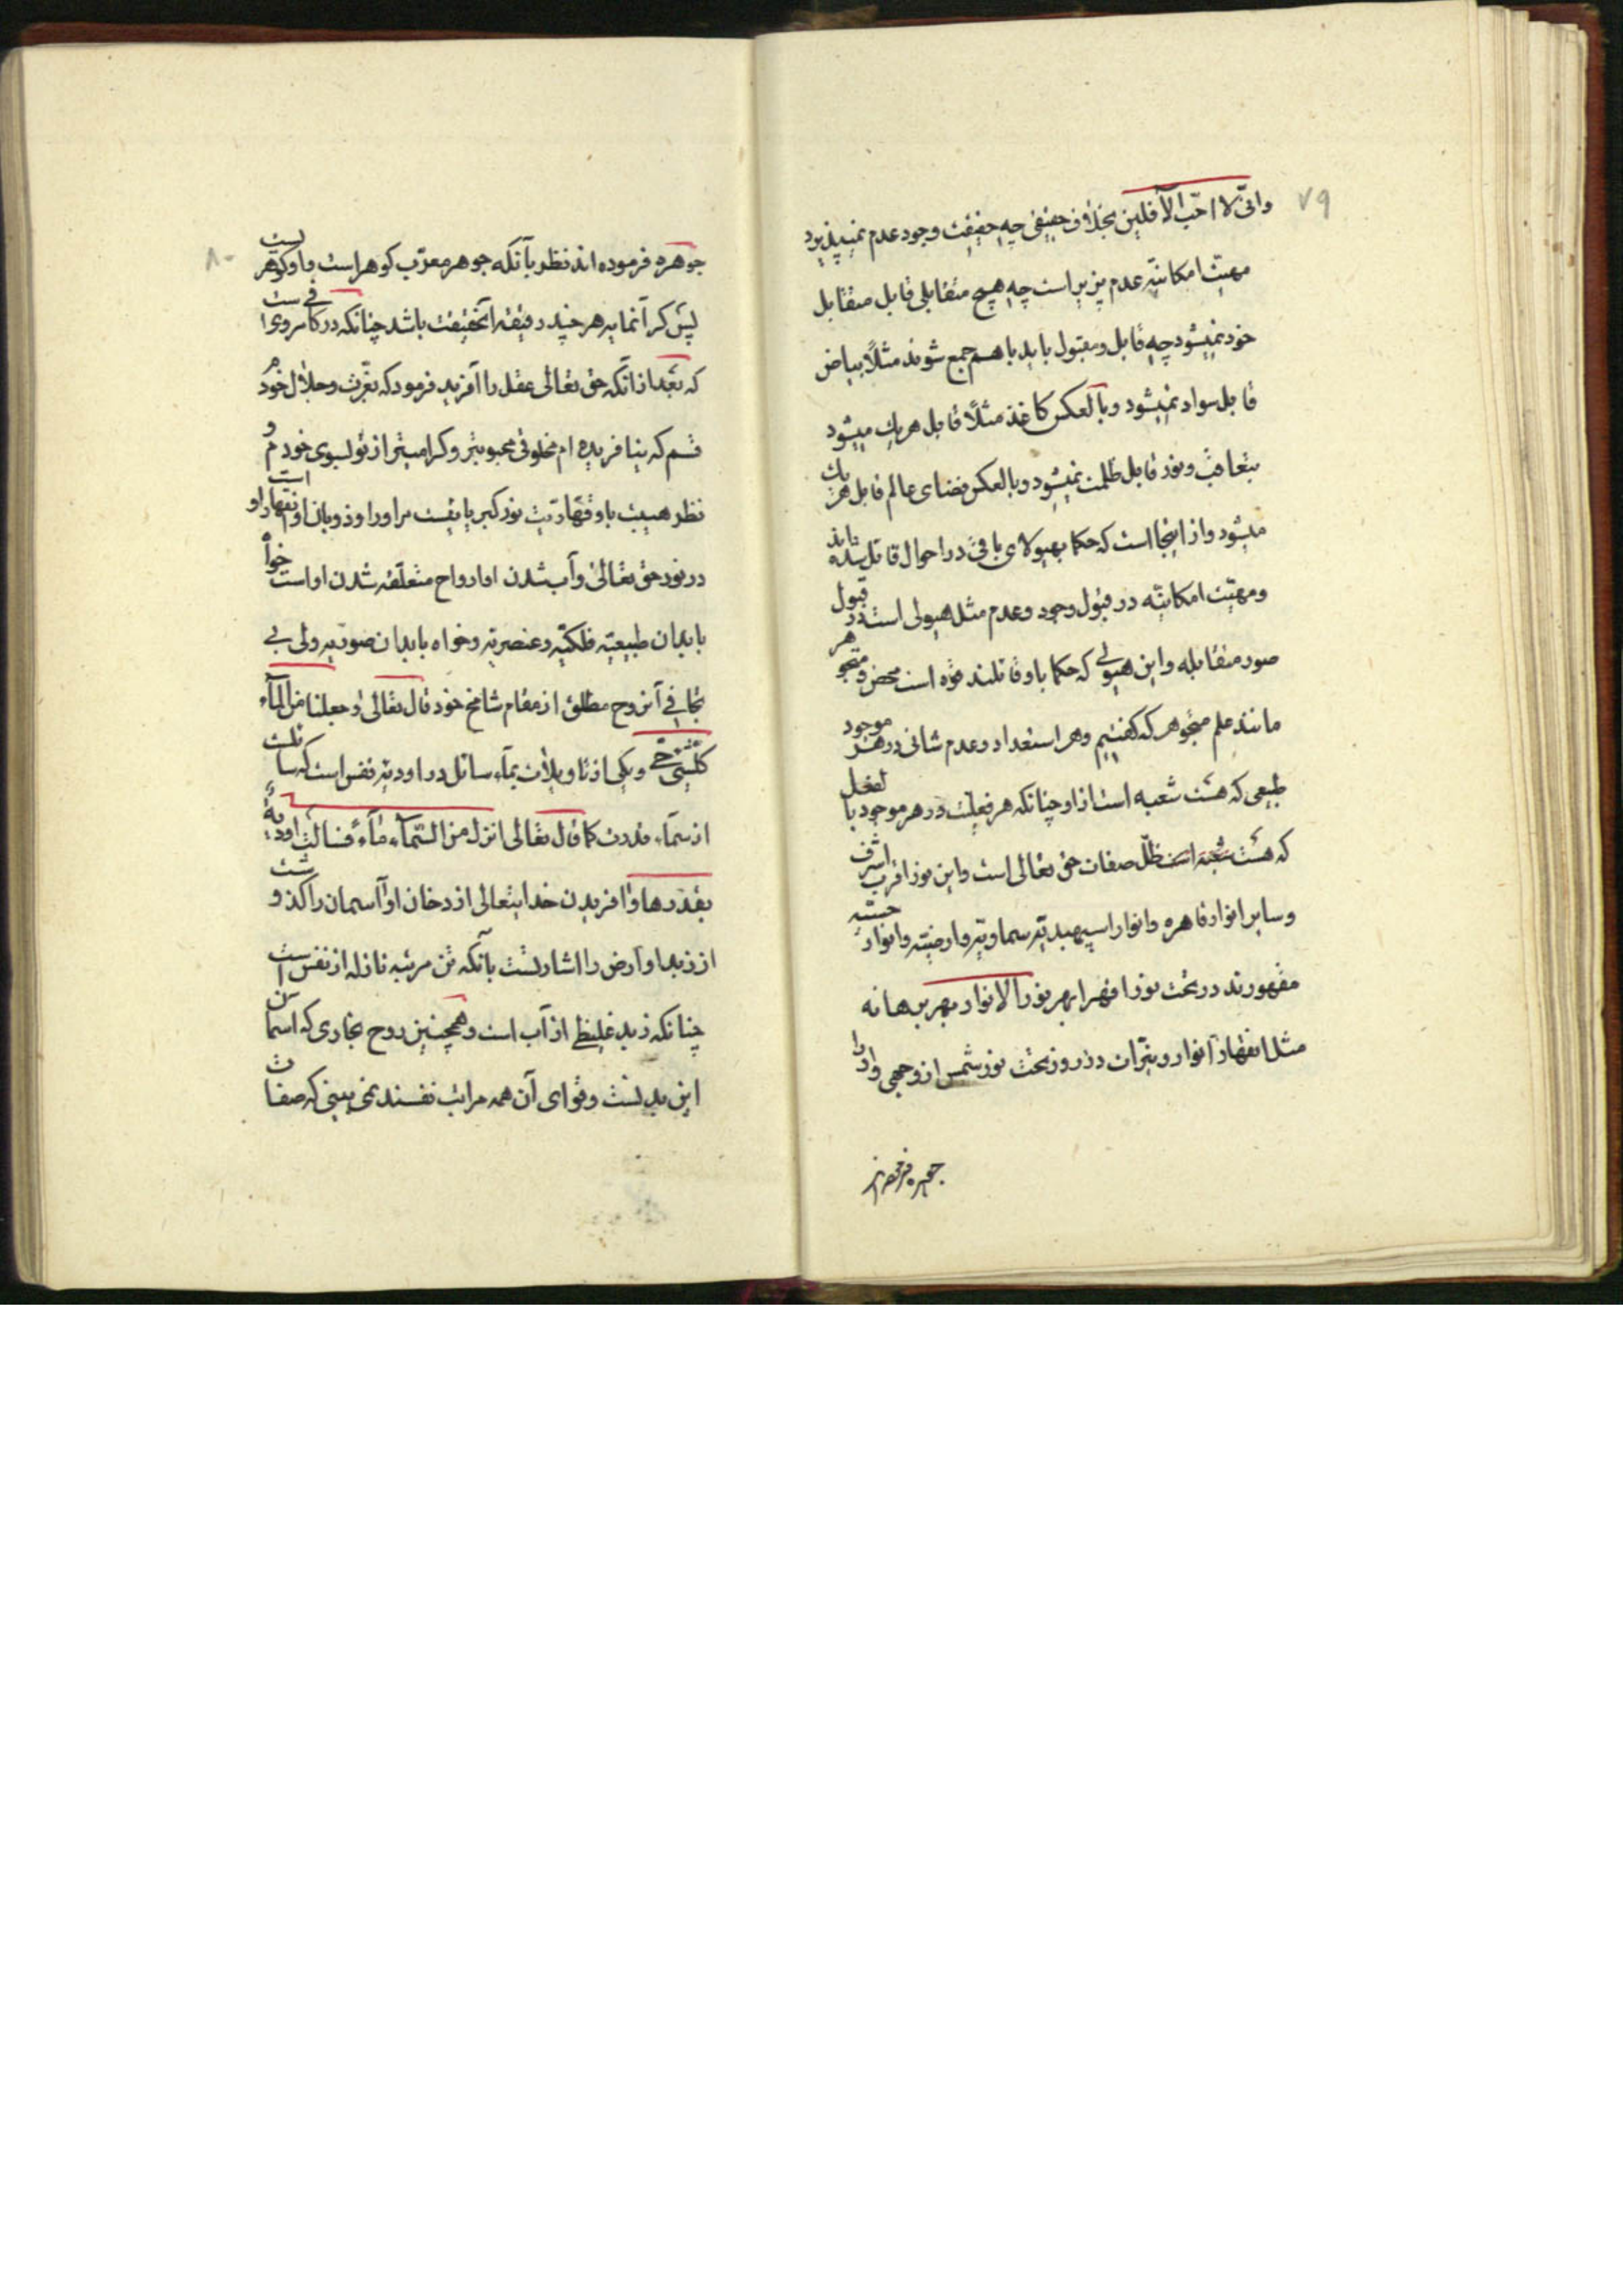 ۷۹
وانّی لا احبّ الآفلین بخلاف حقیقی چه حقیقت وجود عدم نمیپذیرد
مهیّت امکانیّه عدم پزیر است چه هیچ متقابلی قابل متقابل
خود نمیشود چه قابل و مقبول باید باهم جمع شوند مثلاً بیاض
قابل سواد نمیشود و بالعکس کاغذ مثلاً قابل هر یک میشود
بتعاقب و نور قابل ظلمت نمیشود و بالعکس فضای عالم قابل هر یک
میشود و از اینجا است که حکما بهیولای باقی در احوال قائل شده‌اند
و مهیّت امکانیّه در قبول وجود و عدم مثل هیولی است در قبول
صور متقابله و این هیولی که حکما باو قائلند قوه است محض و متجوهر
مانند علم متجوهر که گفتیم و هر استعداد و عدم شانی در هر موجود
طبیعی که هست شعبه است از او چنانکه هر فعلیّت در هر موجود بالفعل
که هست شعبه است ظلّ صفات حق تعالی است و این نور اقرب اشرف
و سایر انوار قاهره و انوار اسپهبدیّه سماویّه و ارضیّه و انوار حسیّه
مقهورند در تحت نور اقهر ابهر نور الانوار بهر برهانه
مثل انقهار انوار و نیّرات در روز تحت نور شمس از وجهی و او را
جوهره فرموده‌اند
۸۰
جوهره فرموده‌اند نظر بآنکه جوهر معرّب کوهر است و او کوهریست
پس کرانمایه هر چند رقیقه آنحقیقت باشد چنانکه در کافی مرویست
که بعد از آنکه حق تعالی عقل را آفرید فرمود که بعزّت و جلال خودم
قسم که نیافریده‌ام مخلوقی محبوبتر و کرامیتر از تو بسوی خودم و
نظر هیبت باو قهّاریّت نور کبریائیست مر او را و ذوبان او انقهار او است
در نور حق تعالی و آب شدن او ارواح متعلّقه شدن او است خواه
بابدان طبیعیّه فلکیّه و عنصریّه و خواه بابدان صوریّه ولی بی
تجافی آنروح مطلق از مقام شامخ خود قال تعالی و جعلنا من الماء
کلّ شیء حیّ و یکی از تاویلات بماء سائل در اودیّه نفس است که سائلست
از سماء قدرت کما قال تعالی انزل من السّماء ماءً فسالت اودیةٌ
بقدرها و آفریدن خدایتعالی از دخان او آسمان را کذشت و
از زبد او ارض را اشارتست بآنکه تن مرتبه نازله از نفس است
چنانکه زبد غلیظی از آب است و همچنین روح بخاری که آسمان
این بدنست و قوای آن همه مراتب نفسند نمی بینی که صفات